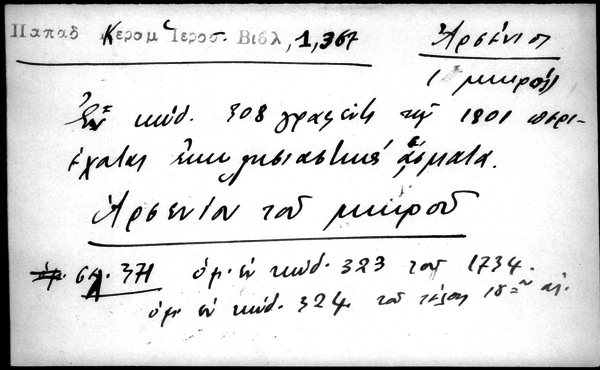 Παπαδ Κεραμ Ἱεροσ. Βιβλ, 1,367
Ἀρσένιος
(μικρός)
Ἐν κώδ. 308 γραφέντι τῷ 1801 περι-
έχονται ἐκκλησιαστικά ᾄσματα.
Ἀρσενίου τοῦ μικροῦ
σελ. 371 ὁμ. ἐν κώδ. 323 τοῦ 1734.
ὁμ. ἐν κώδ. 324 τοῦ τέλους ιδ αἰ.